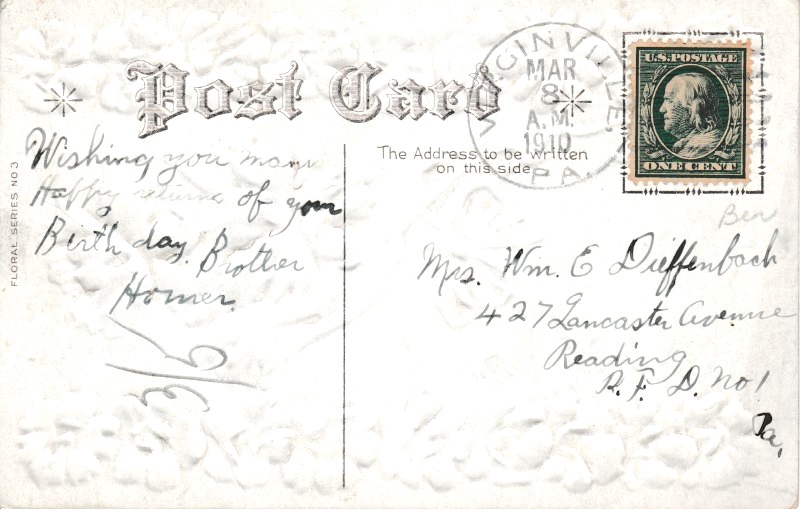 Post Card
VIRGINVILLE,
MAR
8
A.M.
1910
PA
U.S. POSTAGE
ONE CENT
The Address to be written
on this side
FLORAL SERIES NO 3
Wishing you many
Happy returns of your
Birthday. Brother
Homer.
Ben
Mrs. Wm. E Dieffenbach
427 Lancaster Avenue
Reading
R. F. D. No 1
Pa,